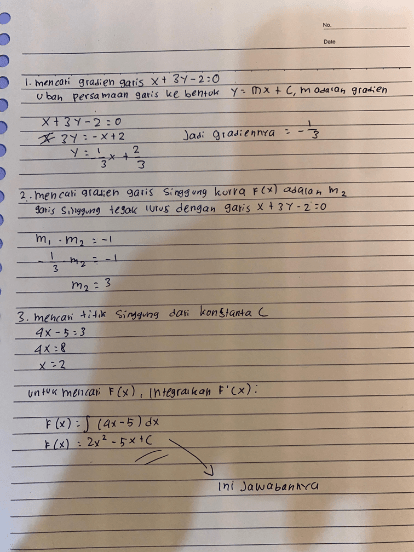 No.
Date
1. mencari gradien garis x + 3y - 2 = 0
Ubah persamaan garis ke bentuk y = mx + c, m adalah gradien
x + 3y - 2 = 0
3y = -x + 2
Jadi gradiennya = -1/3
y = -1/3 x + 2/3
2. mencari gradien garis singgung kurva F(x) adalah m2
garis singgung tegak lurus dengan garis x + 3y - 2 = 0
m1 · m2 = -1
-1/3 · m2 = -1
m2 = 3
3. mencari titik singgung dari konstanta C
4x - 5 = 3
4x = 8
x = 2
untuk mencari F(x), integralkan F'(x) :
F(x) = ∫ (4x - 5) dx
F(x) = 2x² - 5x + C
Ini Jawabannya